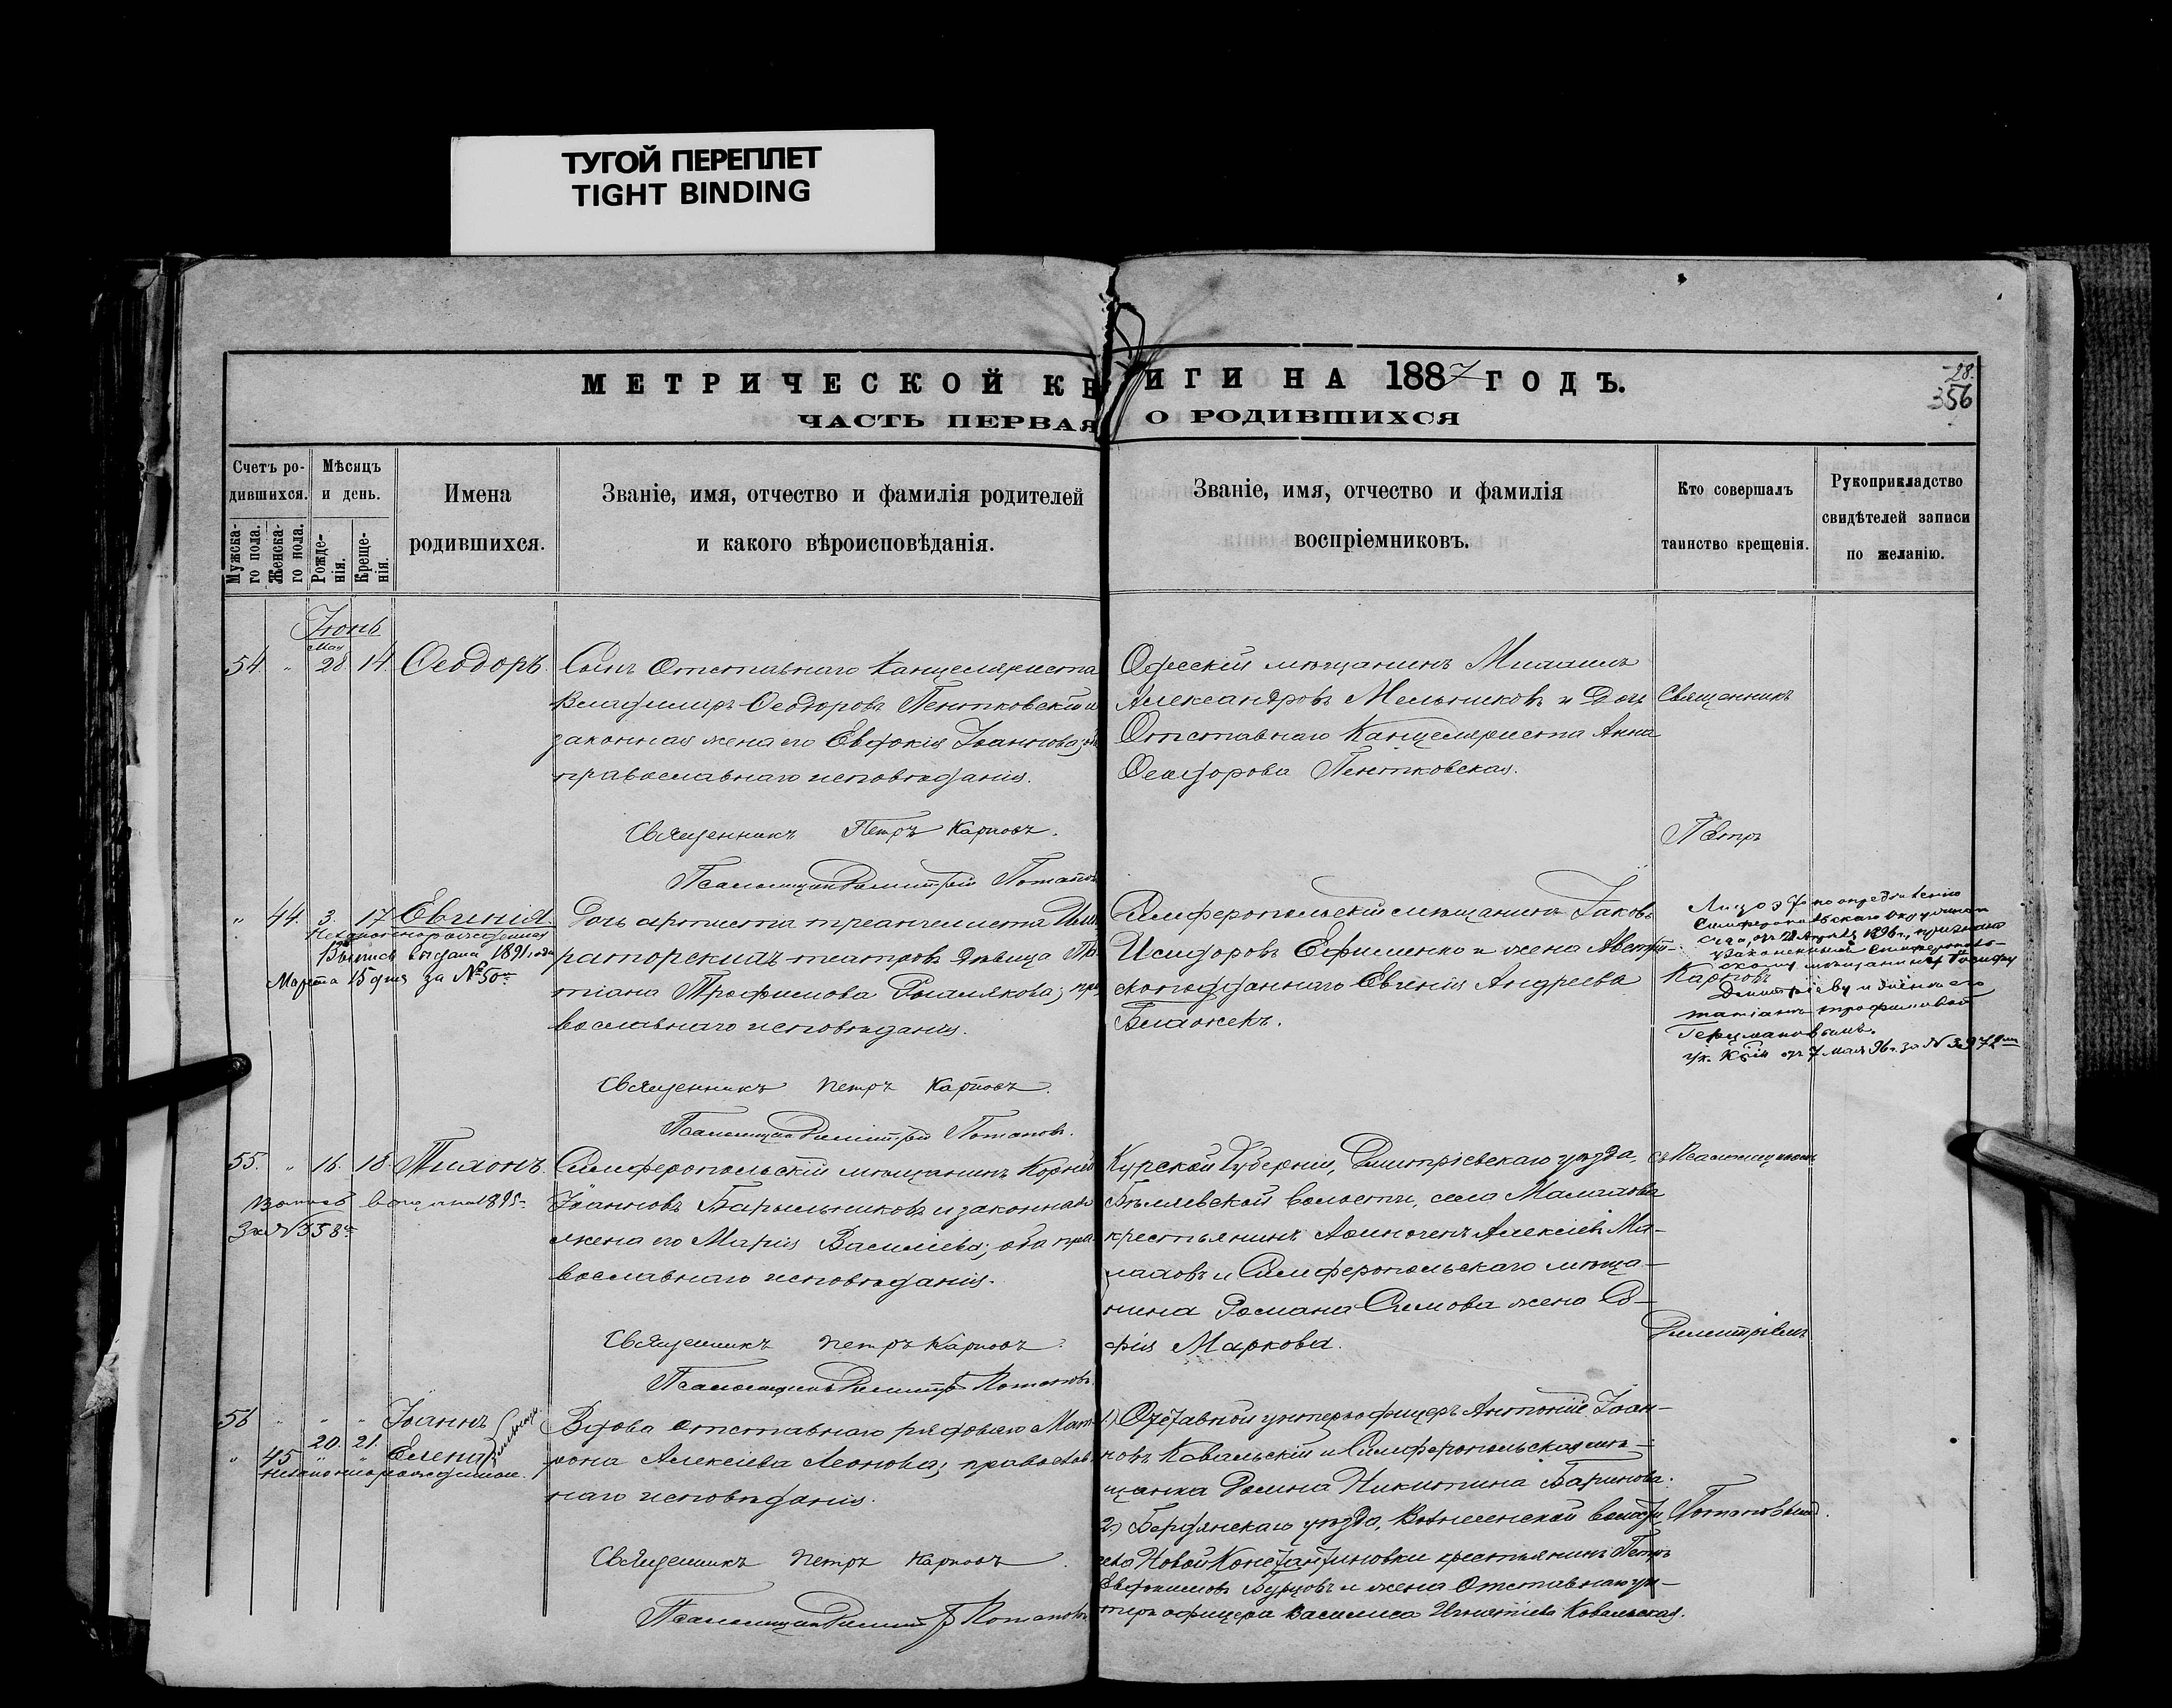 ТУГОЙ ПЕРЕПЛЕТ
TIGHT BINDING
МЕТРИЧЕСКОЙ КН
ИГИ НА 1887 ГОДЪ.
28.
356
ЧАСТЬ ПЕРВАЯ
О РОДИВШИХСЯ
Счетъ ро-
дившихся.
Мужска-
го пола.
Женска-
го пола.
Мѣсяцъ
и день.
Рожде-
нія.
Креще-
нія.
Имена
родившихся.
Званіе, имя, отчество и фамилія родителей
и какого вѣроисповѣданія.
Званіе, имя, отчество и фамилія
воспріемниковъ.
Кто совершалъ
таинство крещенія.
Рукоприкладство
свидѣтелей записи
по желанію.
Іюнь
Мая
54. " 28. 14. Ѳеодоръ.
Сынъ Отставнаго Канцеляриста
Владиміръ Ѳеодоровъ Пентковскій и
законная жена его Евдокія Іоаннова;
православнаго исповѣданія.
Священникъ Петръ Карповъ.
Псаломщикъ Димитрій Потаповъ
Одесскій мѣщанинъ Михаилъ
Александровъ Мельниковъ и Дочь
Отставнаго Канцеляриста Анна
Ѳеодорова Пентковская.
Священникъ
Петръ
" 44. 3. 17. Евгенія.
Незаконнорожденная
Выпись выдана 1891 года
Марта 15 дня за № 50
Дочь артиста Импе
раторскихъ театровъ дѣвица Та
тіана Трофимова пра
вославнаго исповѣданія.
Священникъ Петръ Карповъ.
Псаломщикъ Димитрій Потаповъ.
Симферопольскій мѣщанинъ Іаковъ
Исидоровъ Ефименко и жена Австрій-
скоподданнаго Евгенія Андреева
Блажекъ.
Карповъ
Лицо это по опредѣленію
Симферопольскаго Окружнаго
Суда, отъ 1896 г., признано
узаконеннымъ Симферополь-
скому мѣщанину Іосифу
Дмитріеву и женѣ его
Татіанѣ Трофимовой
ук. К-іи отъ 7 мая 96 г. за № 3972
55. " 16. 18. Тихонъ.
выдана 1895
За № 358
Симферопольскій мѣщанинъ Корній
Іоанновъ Барыльниковъ и законная
жена его Марія Василіева; оба пра-
вославнаго исповѣданія.
Священникъ Петръ Карповъ.
Псаломщикъ Димитрій Потаповъ.
Курской Губерніи, Дмитріевскаго уѣзда,
Бѣляевской волости, села Малахова
крестьянинъ Аѳиногенъ Алексіевъ Ма-
лаховъ и Симферопольскаго мѣща-
нина Романа жена Со-
фія Маркова.
съ Псаломщикомъ
Димитріемъ
56 " " " Іоаннъ
20. 21.
" 45 " " Елена
незаконнорожденные.
Вдова отставнаго рядового Мат-
рона Алексіева Леонова; православ-
наго исповѣданія.
Священникъ Петръ Карповъ.
Псаломщикъ Димитрій Потаповъ
1.) Отставной унтеръ-офицеръ Антоній Іоан-
новъ Ковальскій и Симферопольская мѣ-
щанка Домна Никитина Баринова.
2.) Бердянскаго уѣзда, Вознесенской волости,
села Новой Константиновки крестьянинъ Петръ
Евфимовъ Бурцовъ и жена Отставнаго ун-
теръ офицера Василиса Игнатіева Ковальская.
Потаповымъ.